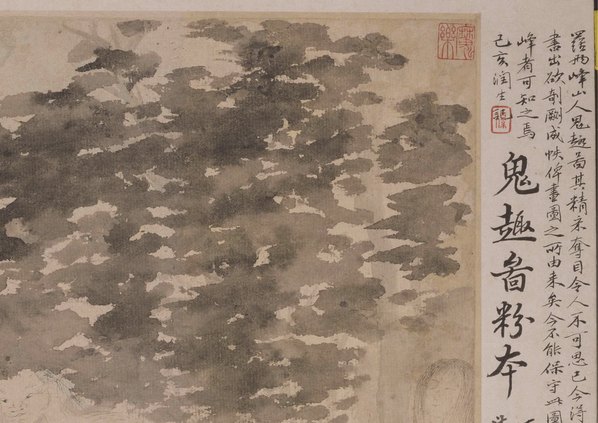 羅兩峰山人鬼趣啚其精采奪目令人不可思已今得
畫出欲剞劂成帙俾畫圖之所由来矣今不能保守此圖
峰者可知之焉
己亥潤生
鬼趣啚粉本